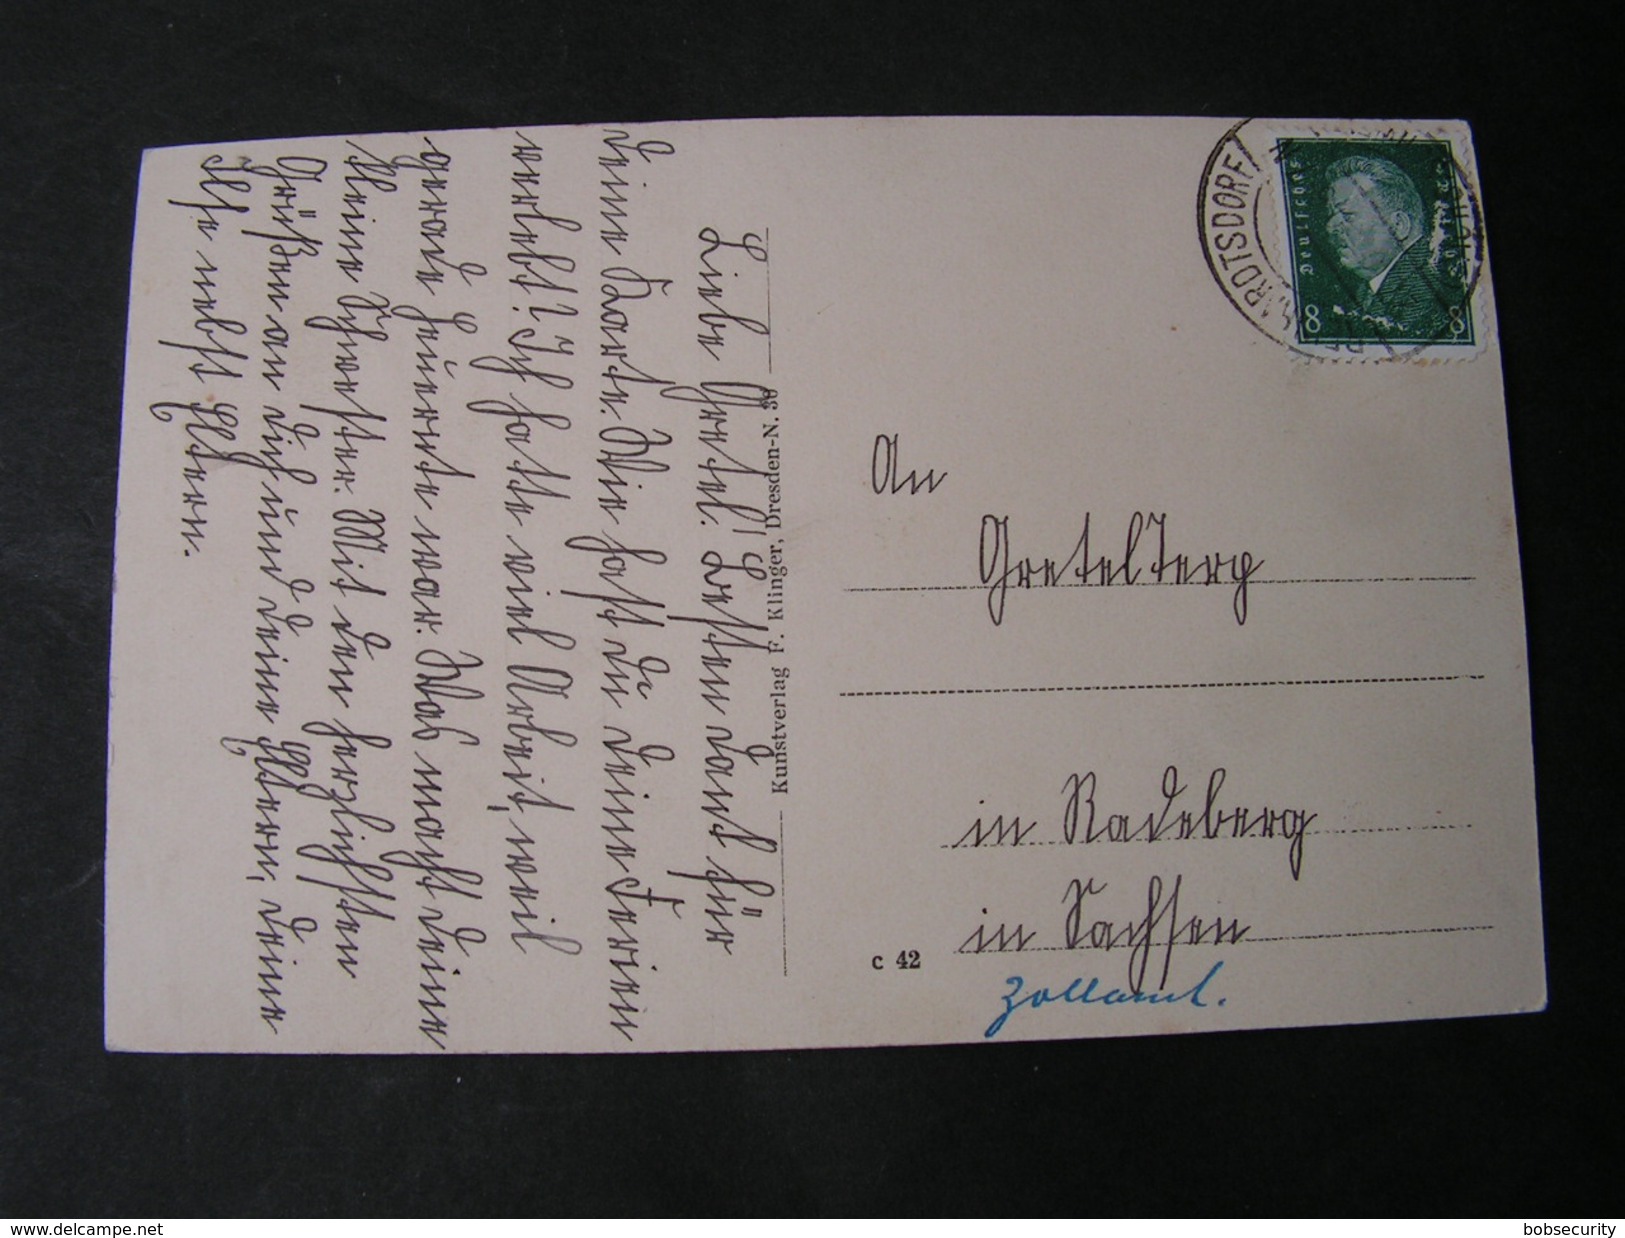 Liebe Gretel! Besten Dank für
deine Karte. Wie hast du deine Ferien
verlebt? Ich hatte viel Arbeit, weil
gerade Heuernte war. Was macht deine
kleine Schwester. Mit den herzlichsten
Grüßen an dich und deine Eltern, deine
Ilse nebst Eltern.
Kunstverlag F. Klinger, Dresden-N. 30
Deutsches
8
8
An
Gretel
in Radeberg
in Sachsen
Zollamt.
c 42
www.delcampe.net
bobsecurity